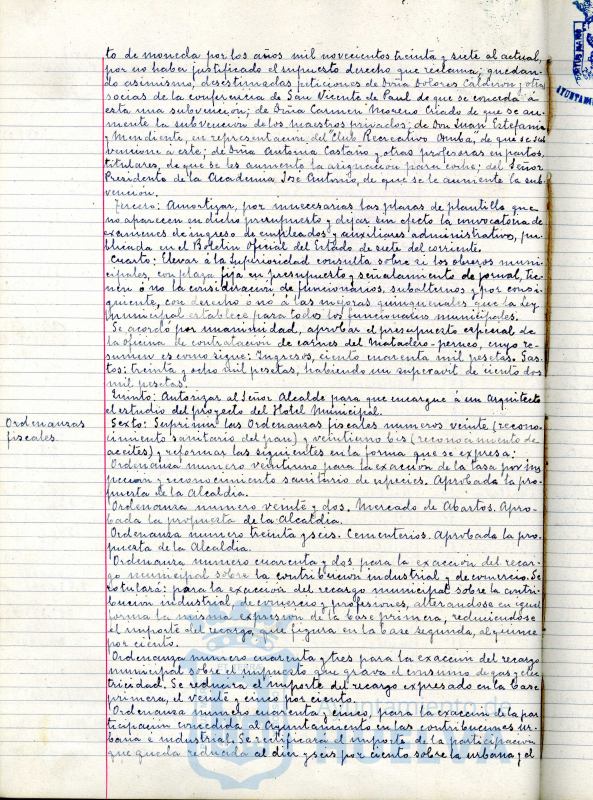 to de moneda por los años mil novecientos treinta y siete al actual,
por no haber justificado el supuesto derecho que reclama; quedan-
do asimismo, desestimadas peticiones de Doña Dolores Calderon y otras
socias de la conferencia de San Vicente de Paul de que se conceda á
esta una subvencion; de Doña Carmen Moreno Criado de que se au-
mente la subvencion de los maestros privados; de Don Juan Estefania
y Mendicute, en representacion del "Club Recreativo Onuba, de que se sub
vencione á este; de Doña Antonia Castaño y otras profesoras en partos,
titulares, de que se les aumente la asignacion para coche; del Señor
Presidente de la Academia José Antonio, de que se le aumente la sub-
vención.
Tercero: Amortizar, por innecesarias las plazas de plantilla que
no aparecen en dicho presupuesto y dejar sin efecto la convocatoria de
exámenes de ingreso de empleados y auxiliares administrativo, pu-
blicada en el Boletin Oficial del Estado de siete del corriente.
Cuarto: Elevar á la Superioridad consulta sobre si los obreros muni-
cipales, con plaza fija en presupuesto y señalamiento de jornal, tie-
nen ó no la consideracion de funcionarios, subalternos y por consi-
guiente, con derecho ó nó á las mejoras quinquenales que la Ley
municipal establece para todos los funcionarios municipales.
Se acordó por unanimidad, aprobar el presupuesto especial de
la oficina de contratación de carnes del Matadero-perneo, cuyo re-
sumen es como sigue: Ingresos, ciento cuarenta mil pesetas. Gas-
tos: treinta y ocho mil pesetas, habiendo un superavit de ciento dos
mil pesetas.
Quinto: Autorizar al Señor Alcalde para que encargue á un Arquitecto
el estudio del proyecto del Hotel Municipal.
Ordenanzas
fiscales.
Sexto: Suprimir las Ordenanzas fiscales numeros veinte (recono-
cimiento sanitario del pan) y veintiuno bis (reconocimiento de
aceites) y reformar las siguientes en la forma que se expresa:
Ordenanza numero veintiuno para la exaccion de la tasa por ins
peccion y reconocimiento sanitario de especies. Aprobada la pro-
puesta de la Alcaldia.
Ordenanza numero veinte y dos. Mercado de Abastos. Apro-
bada la propuesta de la Alcaldia.
Ordenanza numero treinta y seis. Cementerios. Aprobada la pro-
puesta de la Alcaldia.
Ordenanza numero cuarenta y dos para la exaccion del recar-
go municipal sobre la contribucion industrial y de comercio. Se
rotulará: para la exaccion del recargo municipal sobre la contri-
bucion industrial, de comercio y profesiones, alterandose en igual
forma la misma expresion de la base primera, reduciendose
el importe del recargo, que figura en la base segunda, al quince
por ciento.
Ordenanza numero cuarenta y tres para la exaccion del recargo
municipal sobre el impuesto que grava el consumo de gas y elec
tricidad. Se reducira el importe del recargo expresado en la base
primera, el veinte y cinco por ciento.
Ordenanza numero cuarenta y cinco, para la exaccion de la par
ticipacion concedida al Ayuntamiento en las contribuciones ur-
bana é industrial. Se rectificará el importe de la participacion
que queda reducida al diez y seis por ciento sobre la urbana y el
Ayuntamiento de